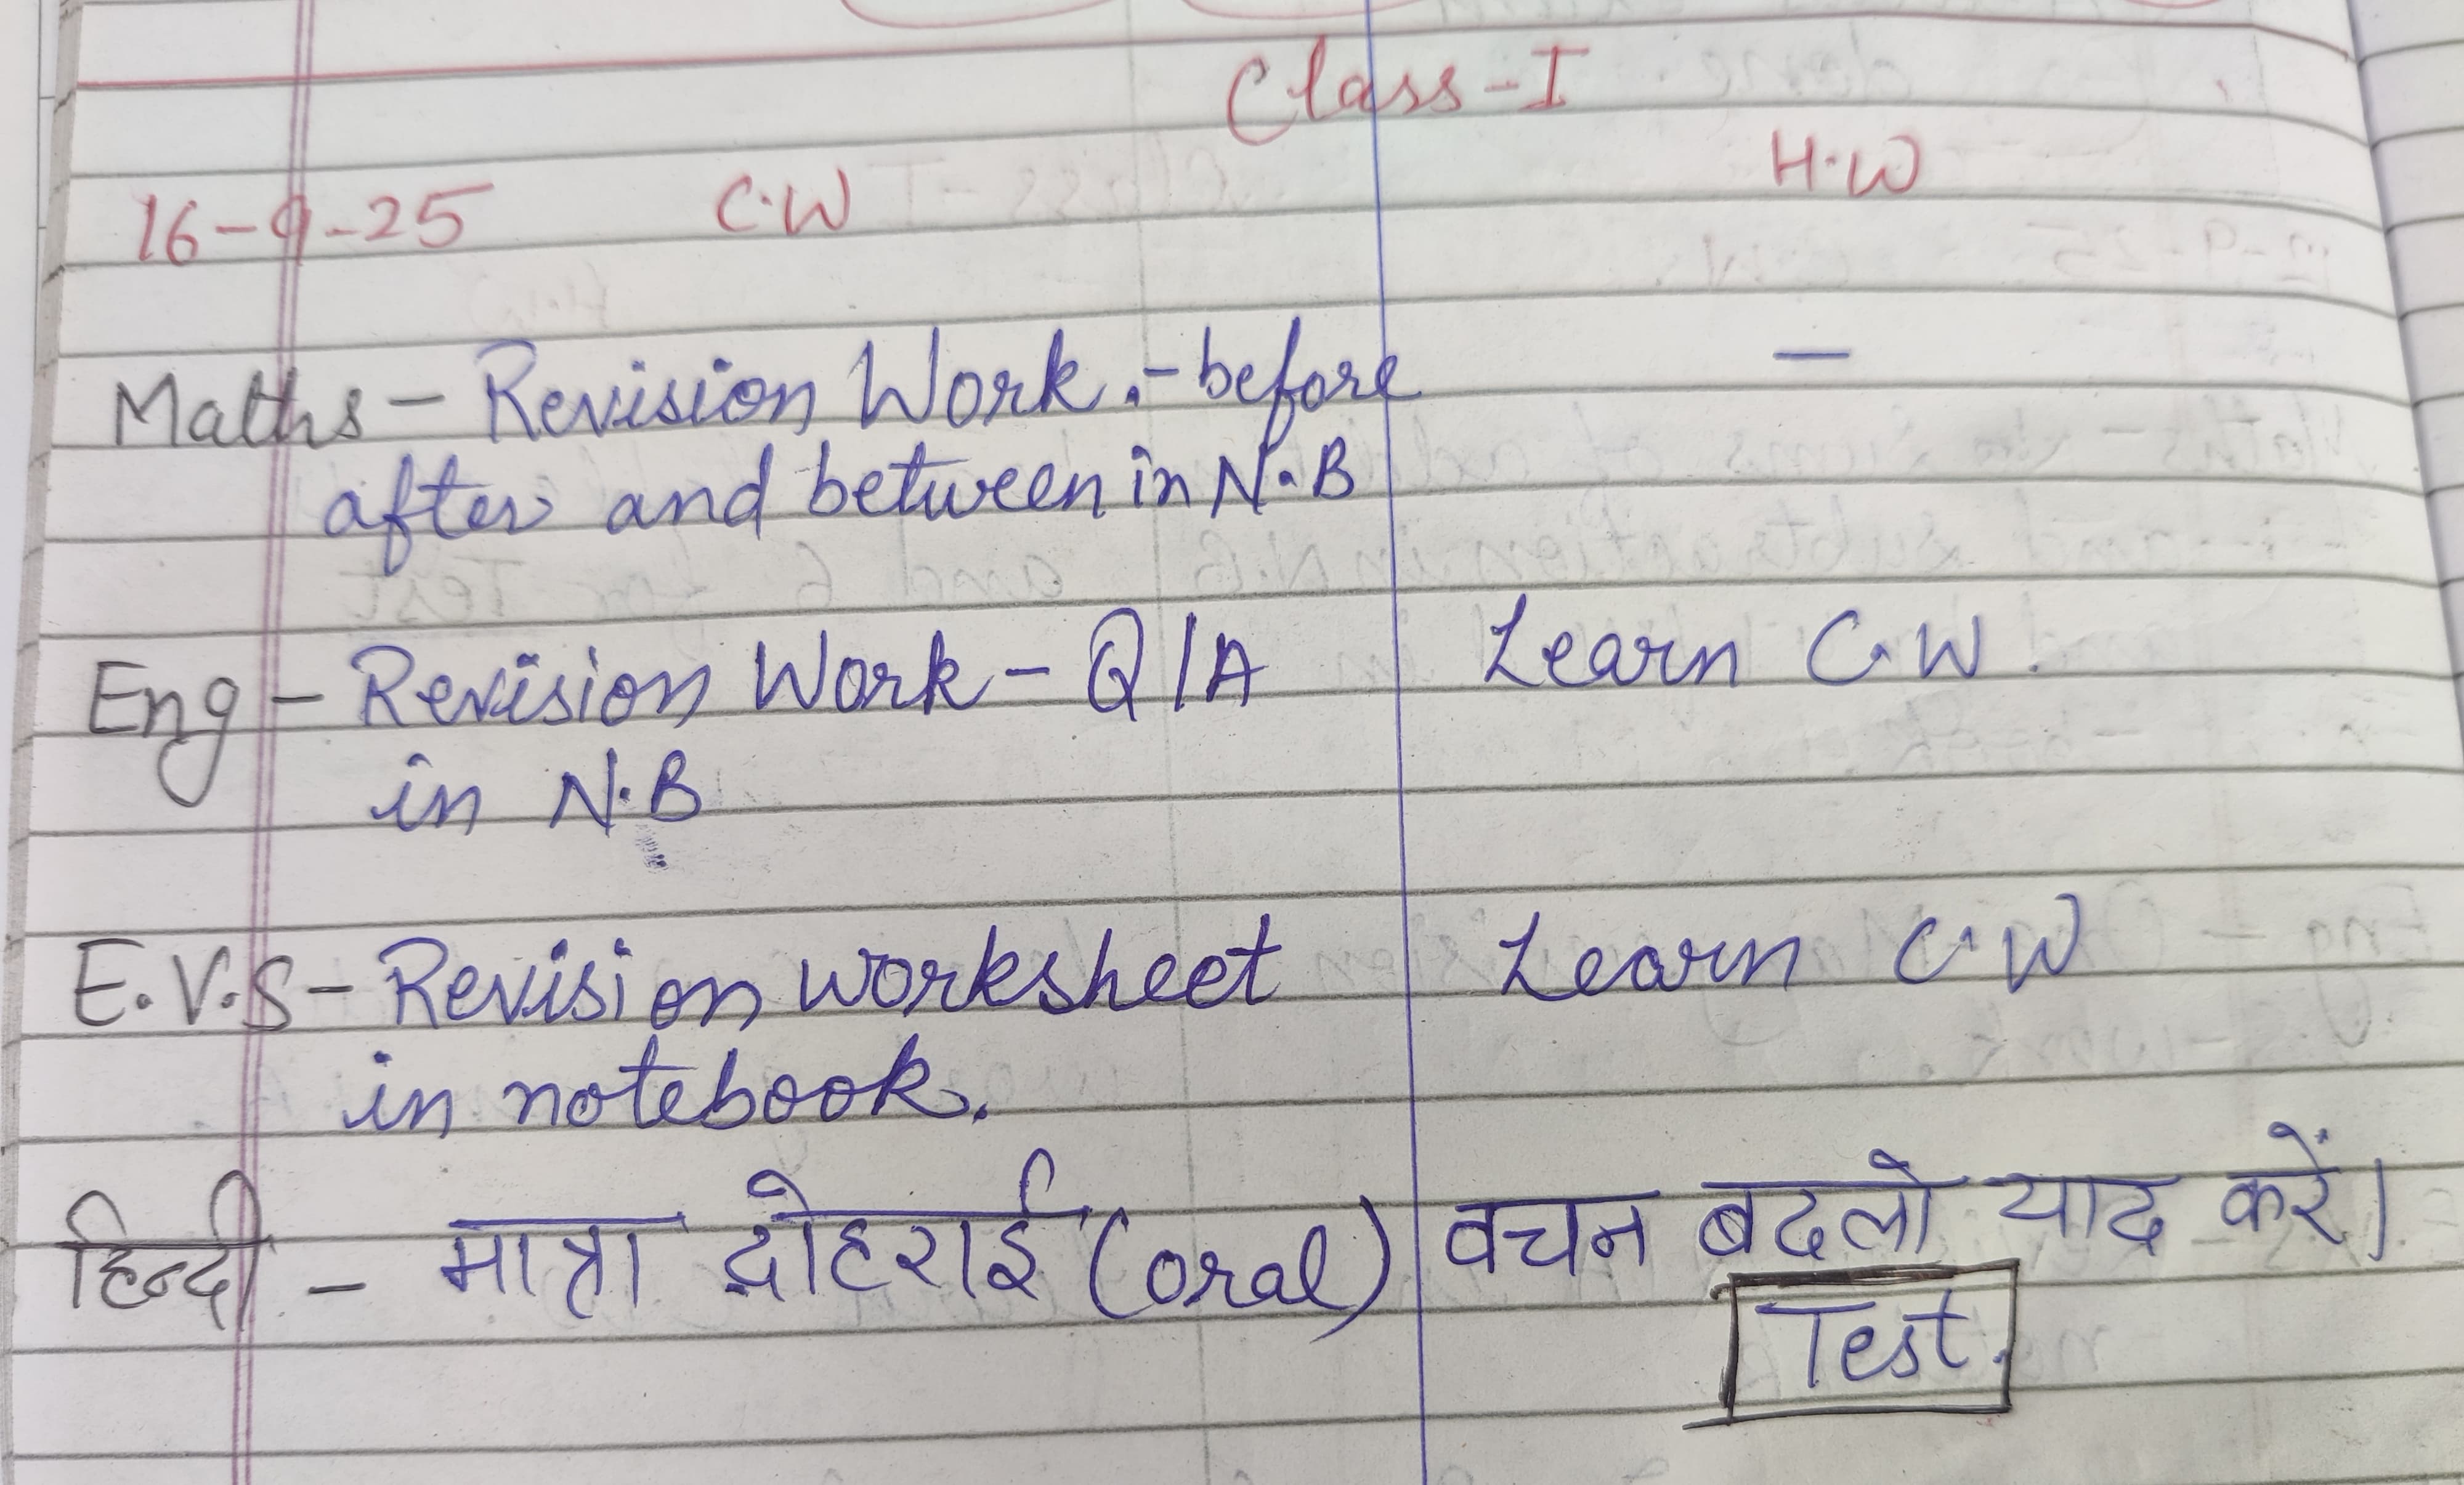 Class-I
16-9-25 C.W H.W
Maths - Revision Work :- before —
after and between in N.B
Eng - Revision Work - Q/A Learn C.W.
in N.B
E.V.S - Revision worksheet Learn C.W
in notebook.
हिन्दी - मात्रा दोहराई (oral) वचन बदलो याद करें।
Test.